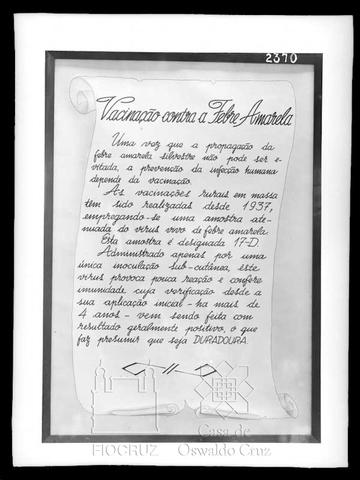 2370
Vacinação contra a Febre Amarela
Uma vez que a propagação da
febre amarela silvestre não pode ser e-
vitada, a prevenção da infecção humana
depende da vacinação.
As vacinações rurais em massa
têm sido realizadas desde 1937,
empregando-se uma amostra ate-
nuada do virus vivo de febre amarela.
Esta amostra é designada 17-D.
Administrado apenas por uma
única inoculação sub-cutânea, êste
virus provoca pouca reação e confere
imunidade cuja verificação desde a
sua aplicação inicial - ha mais de
4 anos - vem sendo feita com
resultado geralmente positivo, o que
faz presumir que seja DURADOURA.
FIOCRUZ
Casa de
Oswaldo Cruz